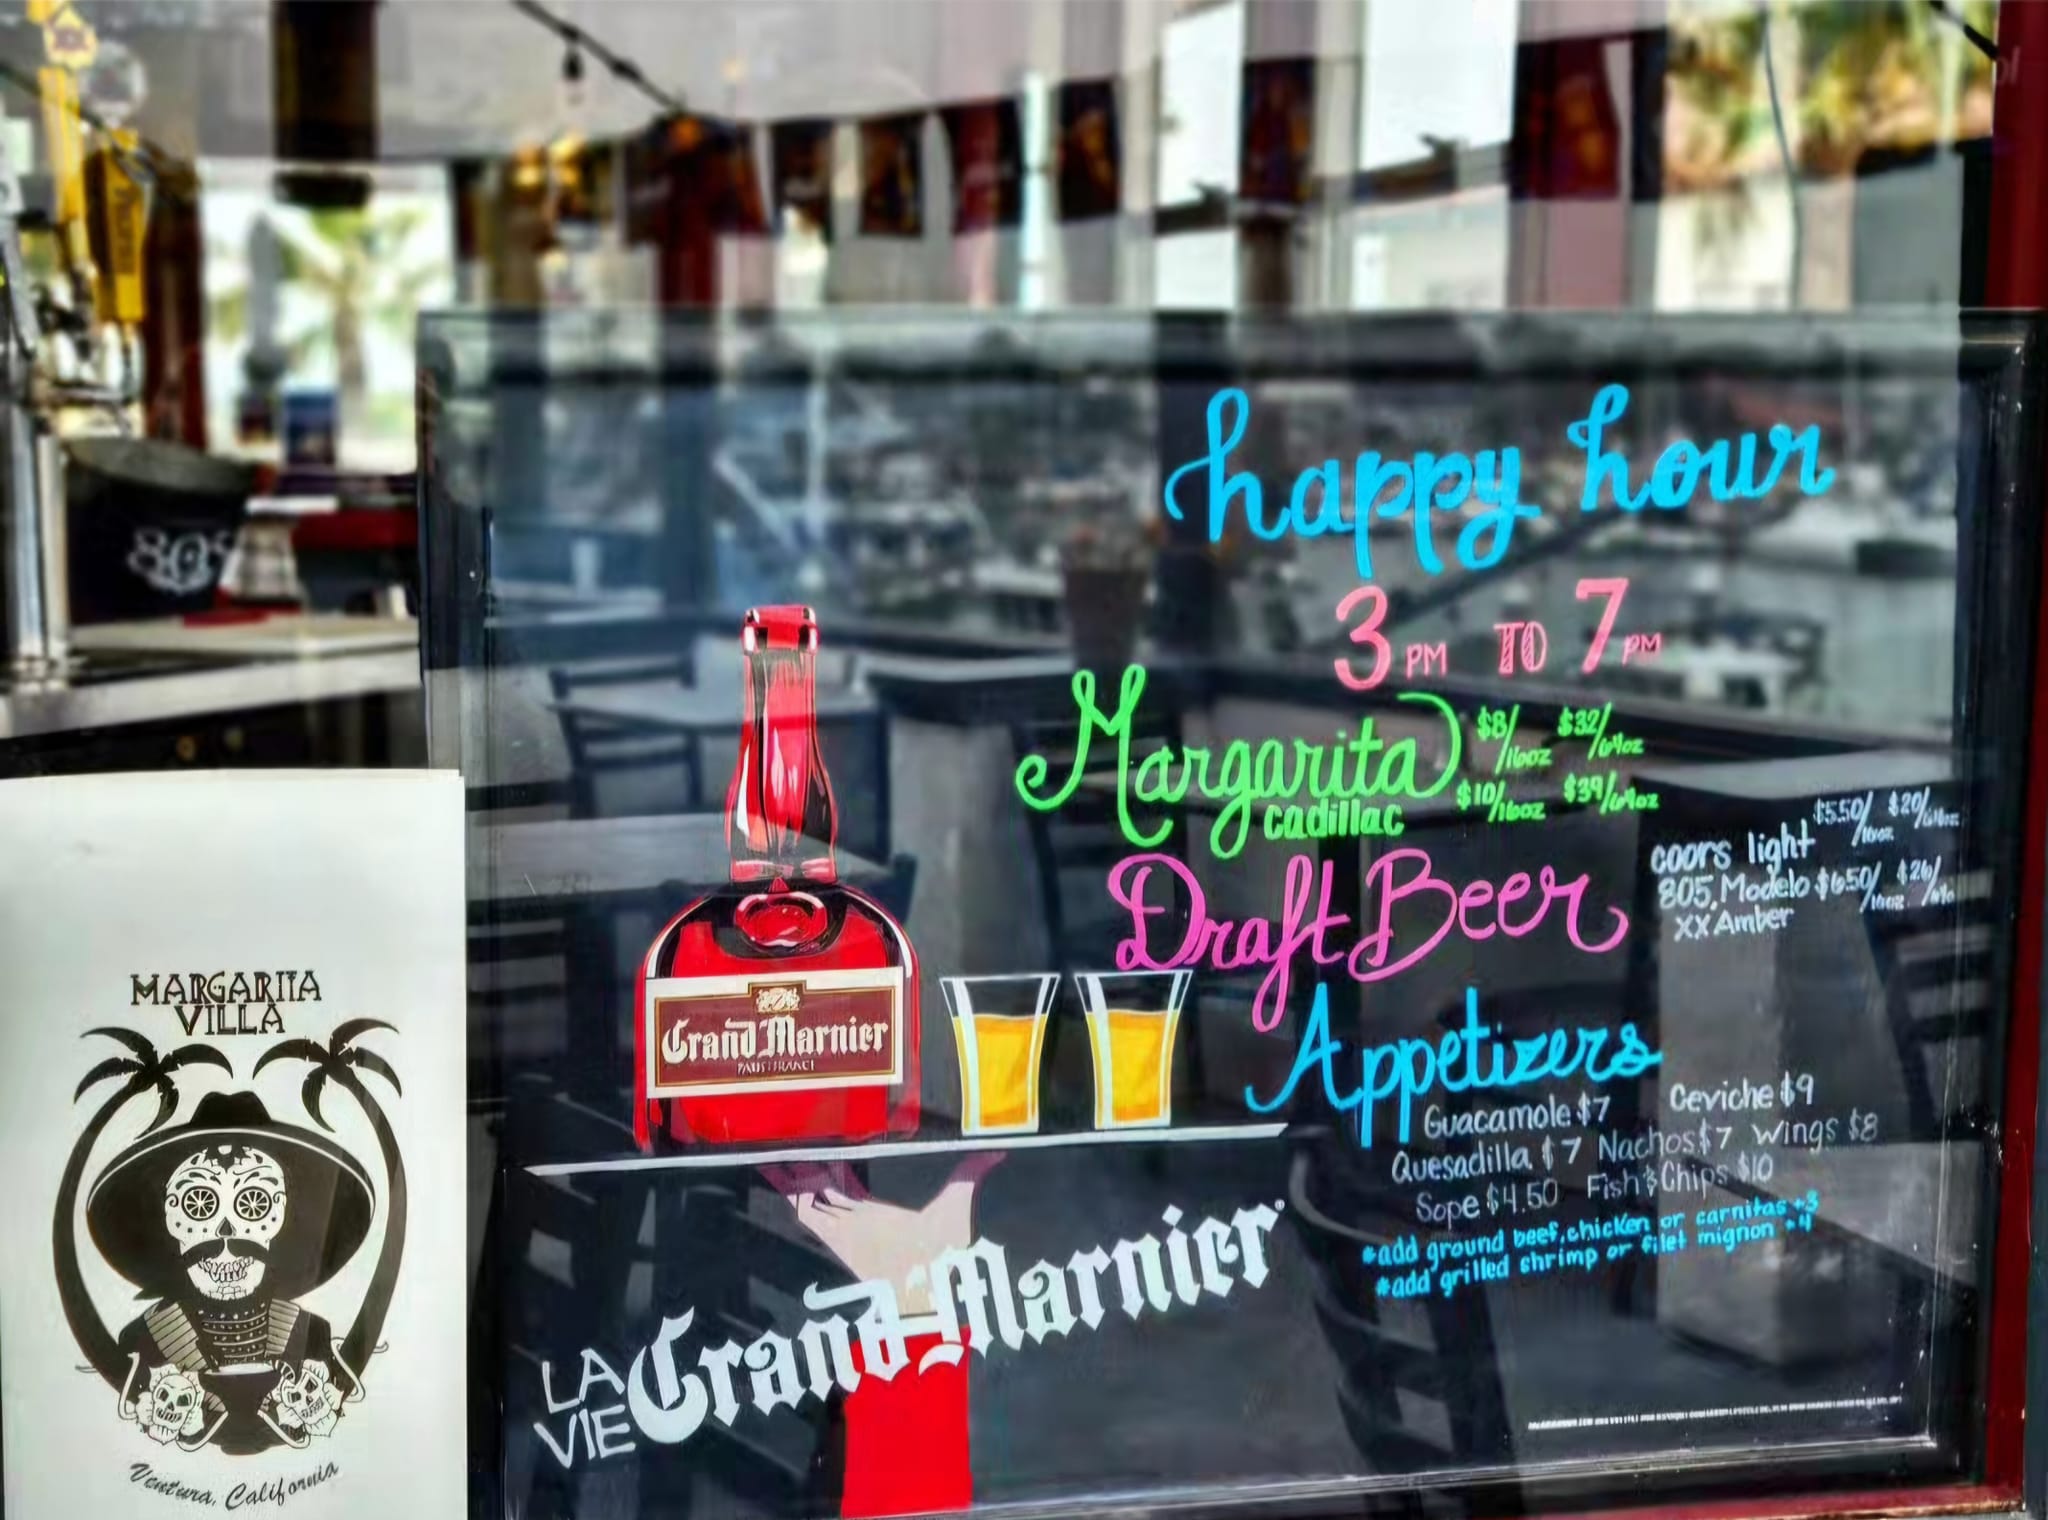 happy hour
3 PM TO 7 PM
Margarita $8/16oz $32/64oz
cadillac $10/16oz $39/64oz
Draft Beer
coors light $5.50/16oz $20/64oz
805, Modelo $6.50/16oz $26/64
XX Amber
Appetizers
Guacamole $7 Ceviche $9
Quesadilla $7 Nachos $7 Wings $8
Sope $4.50 Fish & Chips $10
*add ground beef, chicken or carnitas +3
*add grilled shrimp or filet mignon +4
Grand Marnier
LA VIE Grand Marnier
805
MARGARITA
VILLA
Ventura, California